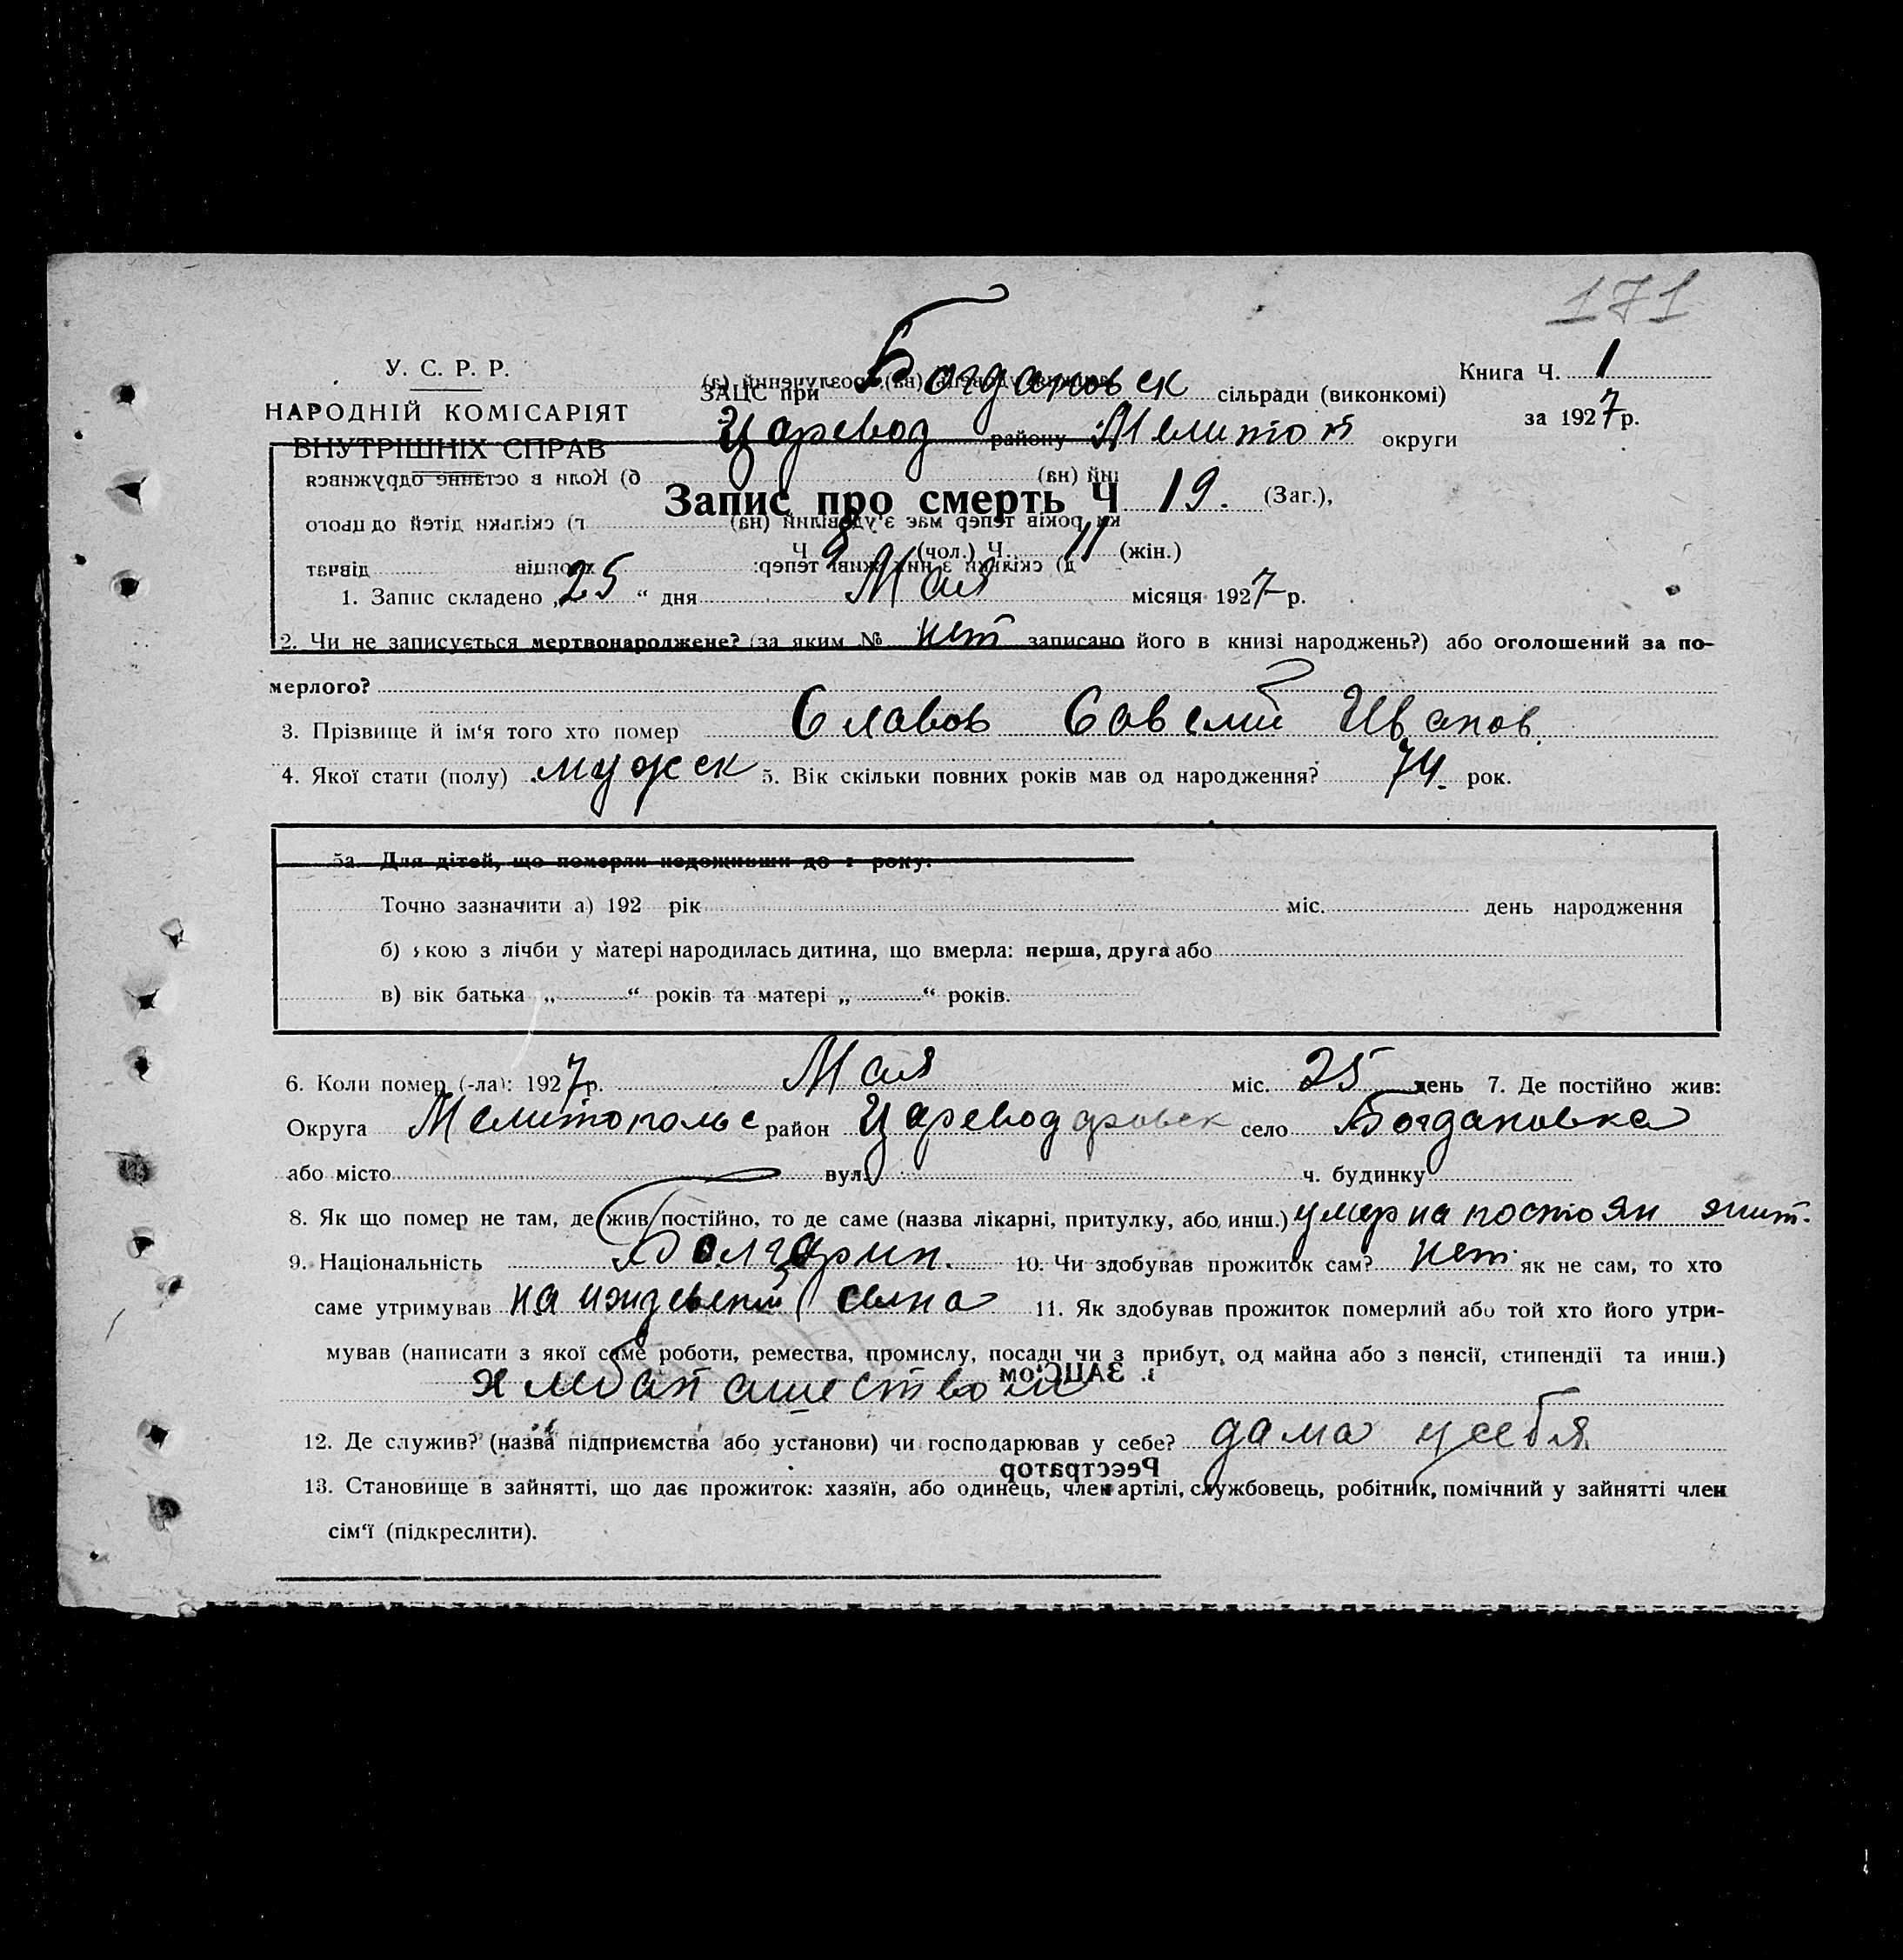 171
У. С. Р. Р.
НАРОДНІЙ КОМІСАРІЯТ
ВНУТРІШНІХ СПРАВ
ЗАЦС при Богдановск сільради (виконкомі)
Царевод району Мелитоп округи
Книга Ч. 1
за 1927 р.
Запис про смерть Ч 19. (Заг.),
Ч 8 (чол.) Ч. 11 (жін.)
1. Запис складено „25“ дня Мая місяця 1927 р.
2. Чи не записується мертвонароджене? (за яким № нет записано його в книзі народжень?) або оголошений за по-
мерлого?
3. Прізвище й ім‘я того хто помер Славов Савелий Иванов.
4. Якої стати (полу) мужск 5. Вік скільки повних років мав од народження? 74. рок.
5а. Для дітей, що померли недоживши до 1 року:
Точно зазначити а) 192 рік міс. день народження
б) якою з лічби у матері народилась дитина, що вмерла: перша, друга або
в) вік батька „ “ років та матері „ “ років.
6. Коли помер (-ла): 1927 р. Мая міс. 25 день 7. Де постійно жив:
Округа Мелитопольс район Цареводаровск село Богдановка
або місто вул. ч. будинку
8. Як що помер не там, де жив постійно, то де саме (назва лікарні, притулку, або инш.) умер на постоян жит.
9. Національність Болгарин. 10. Чи здобував прожиток сам? нет як не сам, то хто
саме утримував на иждевений сына 11. Як здобував прожиток померлий або той хто його утри-
мував (написати з якої саме роботи, ремества, промислу, посади чи з прибут, од майна або з пенсії, стипендії та инш.)
хлебопашеством
12. Де служив? (назва підприємства або установи) чи господарював у себе? дама у себя
13. Становище в зайнятті, що дає прожиток: хазяїн, або одинець, член артілі, службовець, робітник, помічний у зайнятті член
сім‘ї (підкреслити).